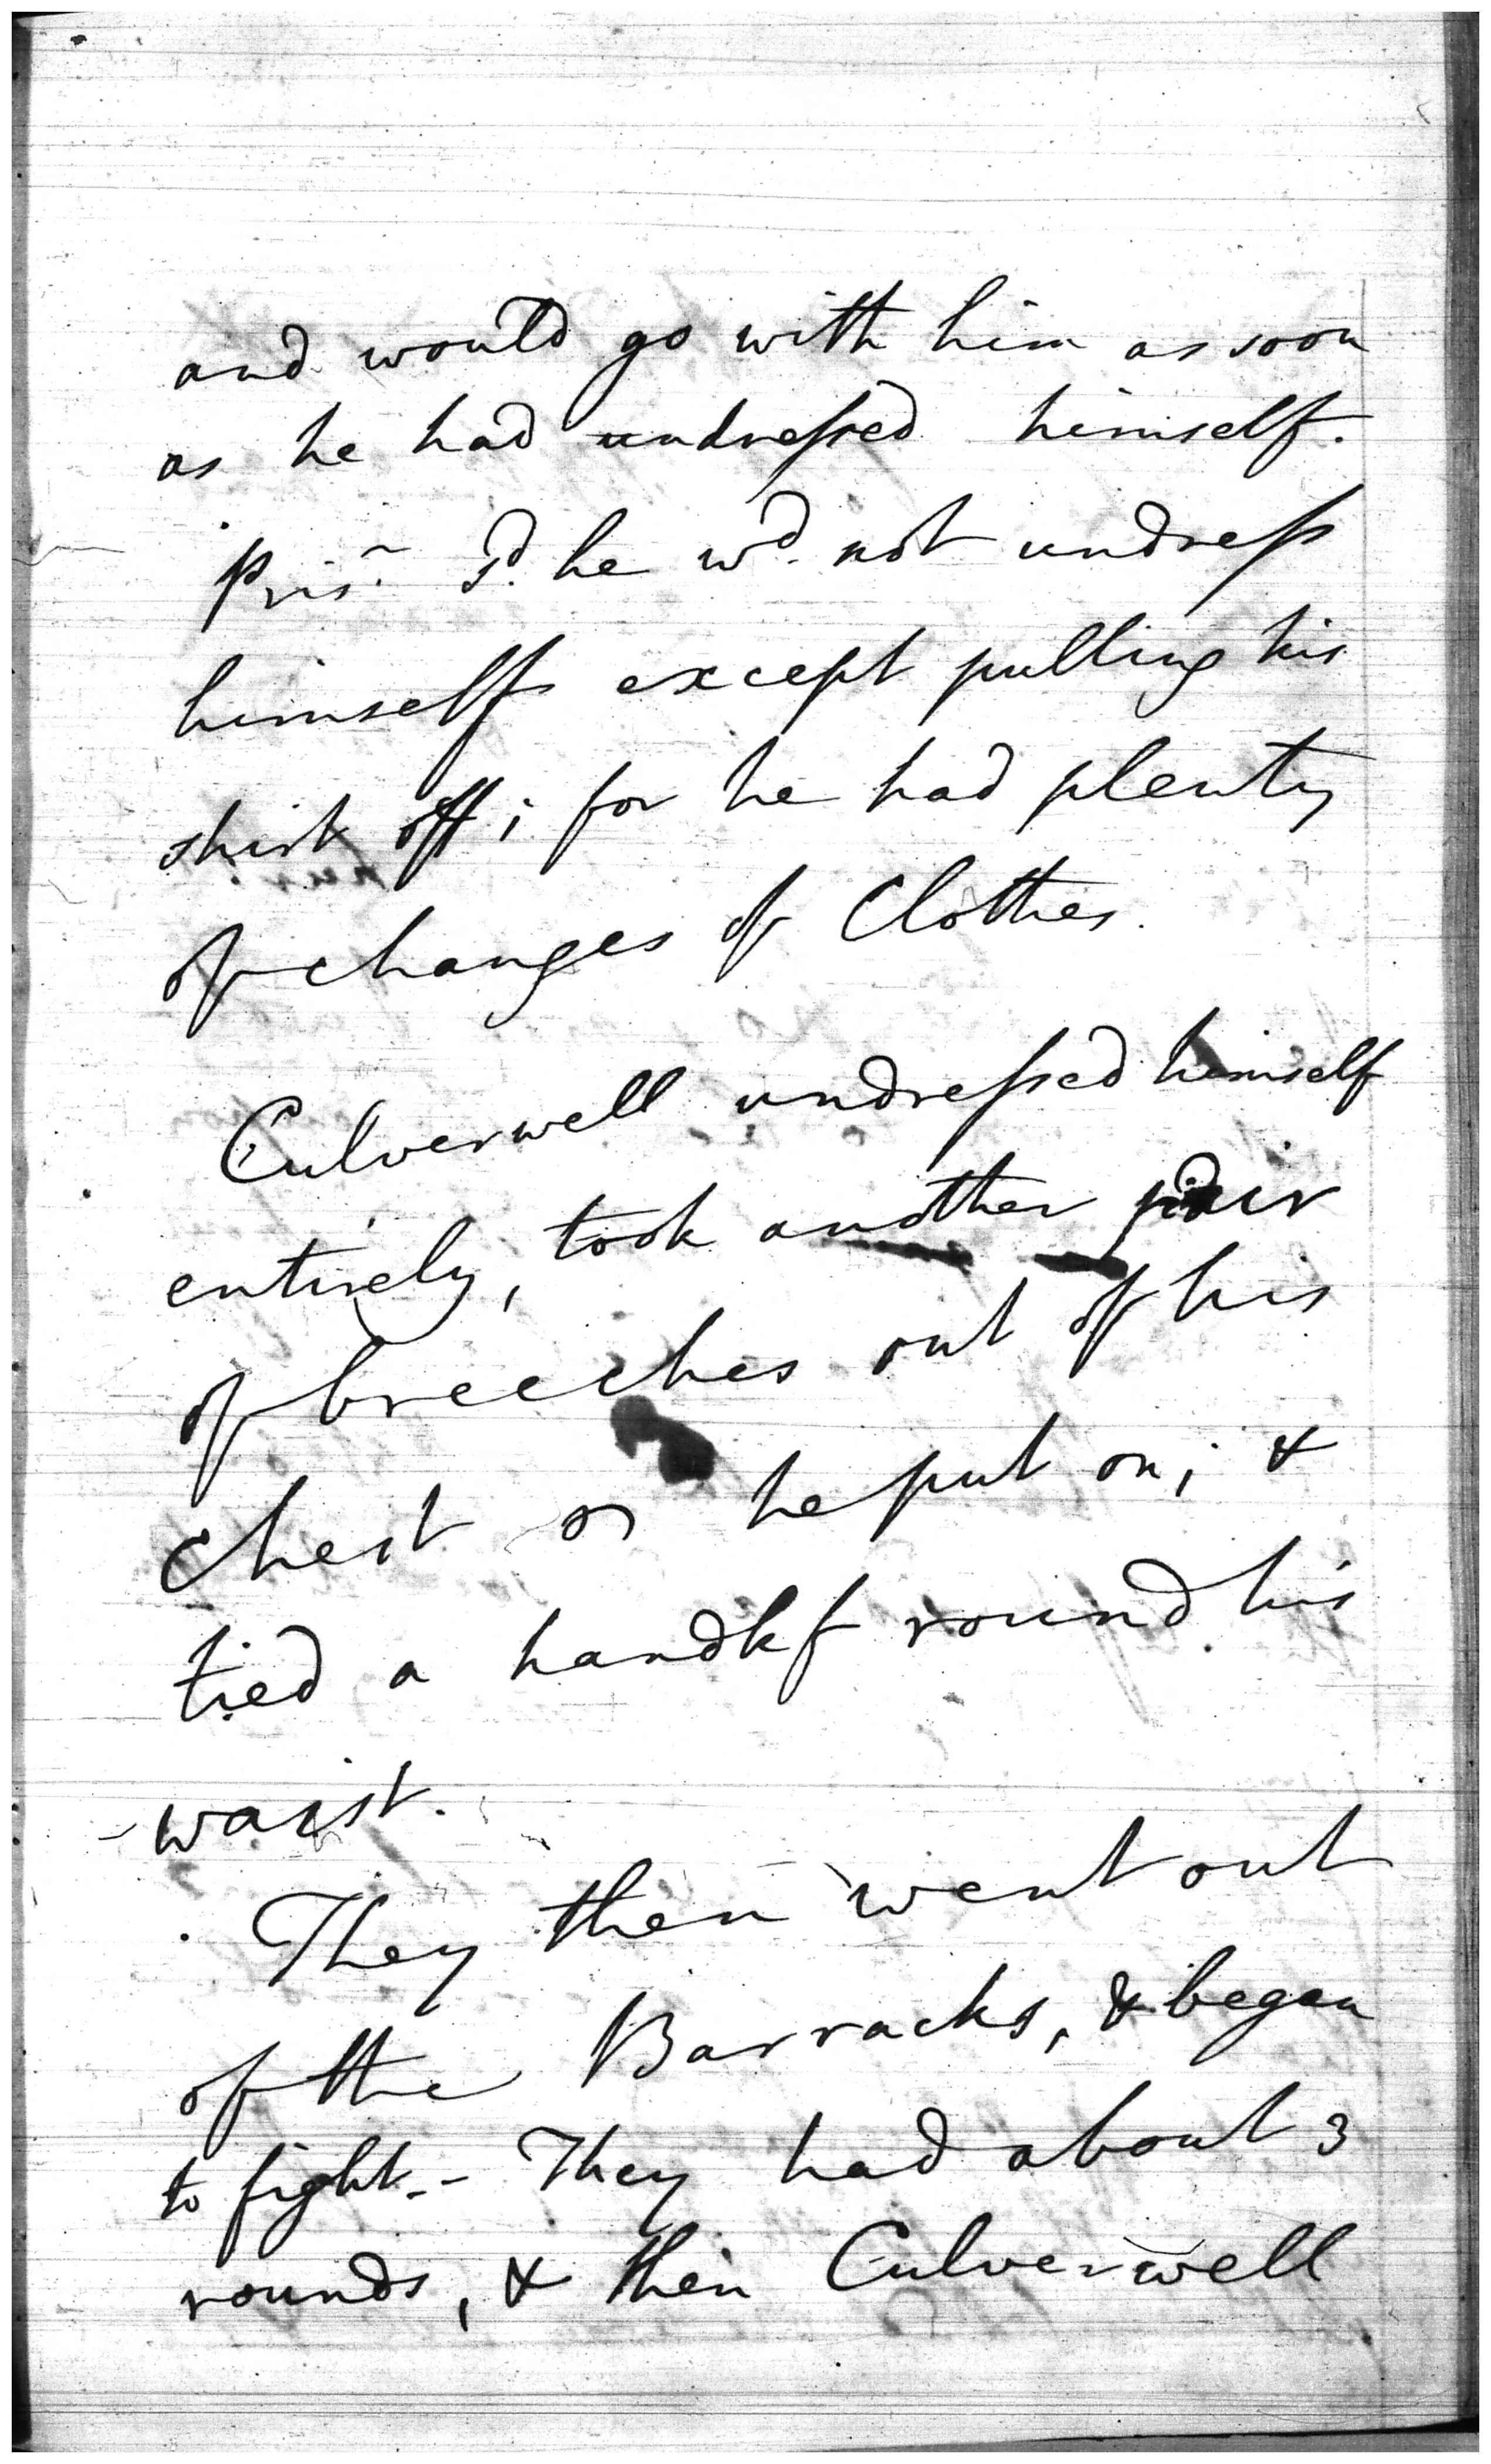 and would go with him as soon
as he had undressed himself.
Prisr. Sd. he wd. not undress
himself except pulling his
shirt off; for he had plenty
of changes of Clothes.
Culverwell undressed himself
entirely, took another pair
of breeches out of his
Chest & he put on; &
tied a handkf round his
waist.
They then went out
of the Barracks, & began
to fight.- They had about 3
rounds, & then Culverwell